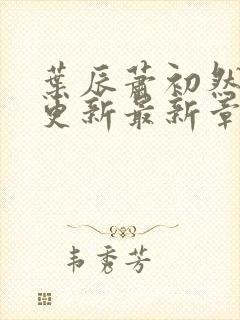 葉辰蕭初然
更新最新章
韦秀芳